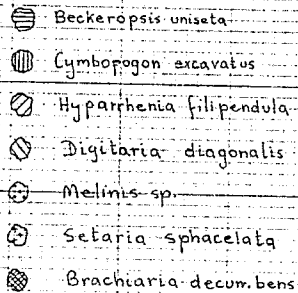 Beckeropsis uniseta
Cymbopogon excavatus
Hyparrhenia filipendula
Digitaria diagonalis
Melinis sp.
Setaria sphacelata
Brachiaria decum.bens